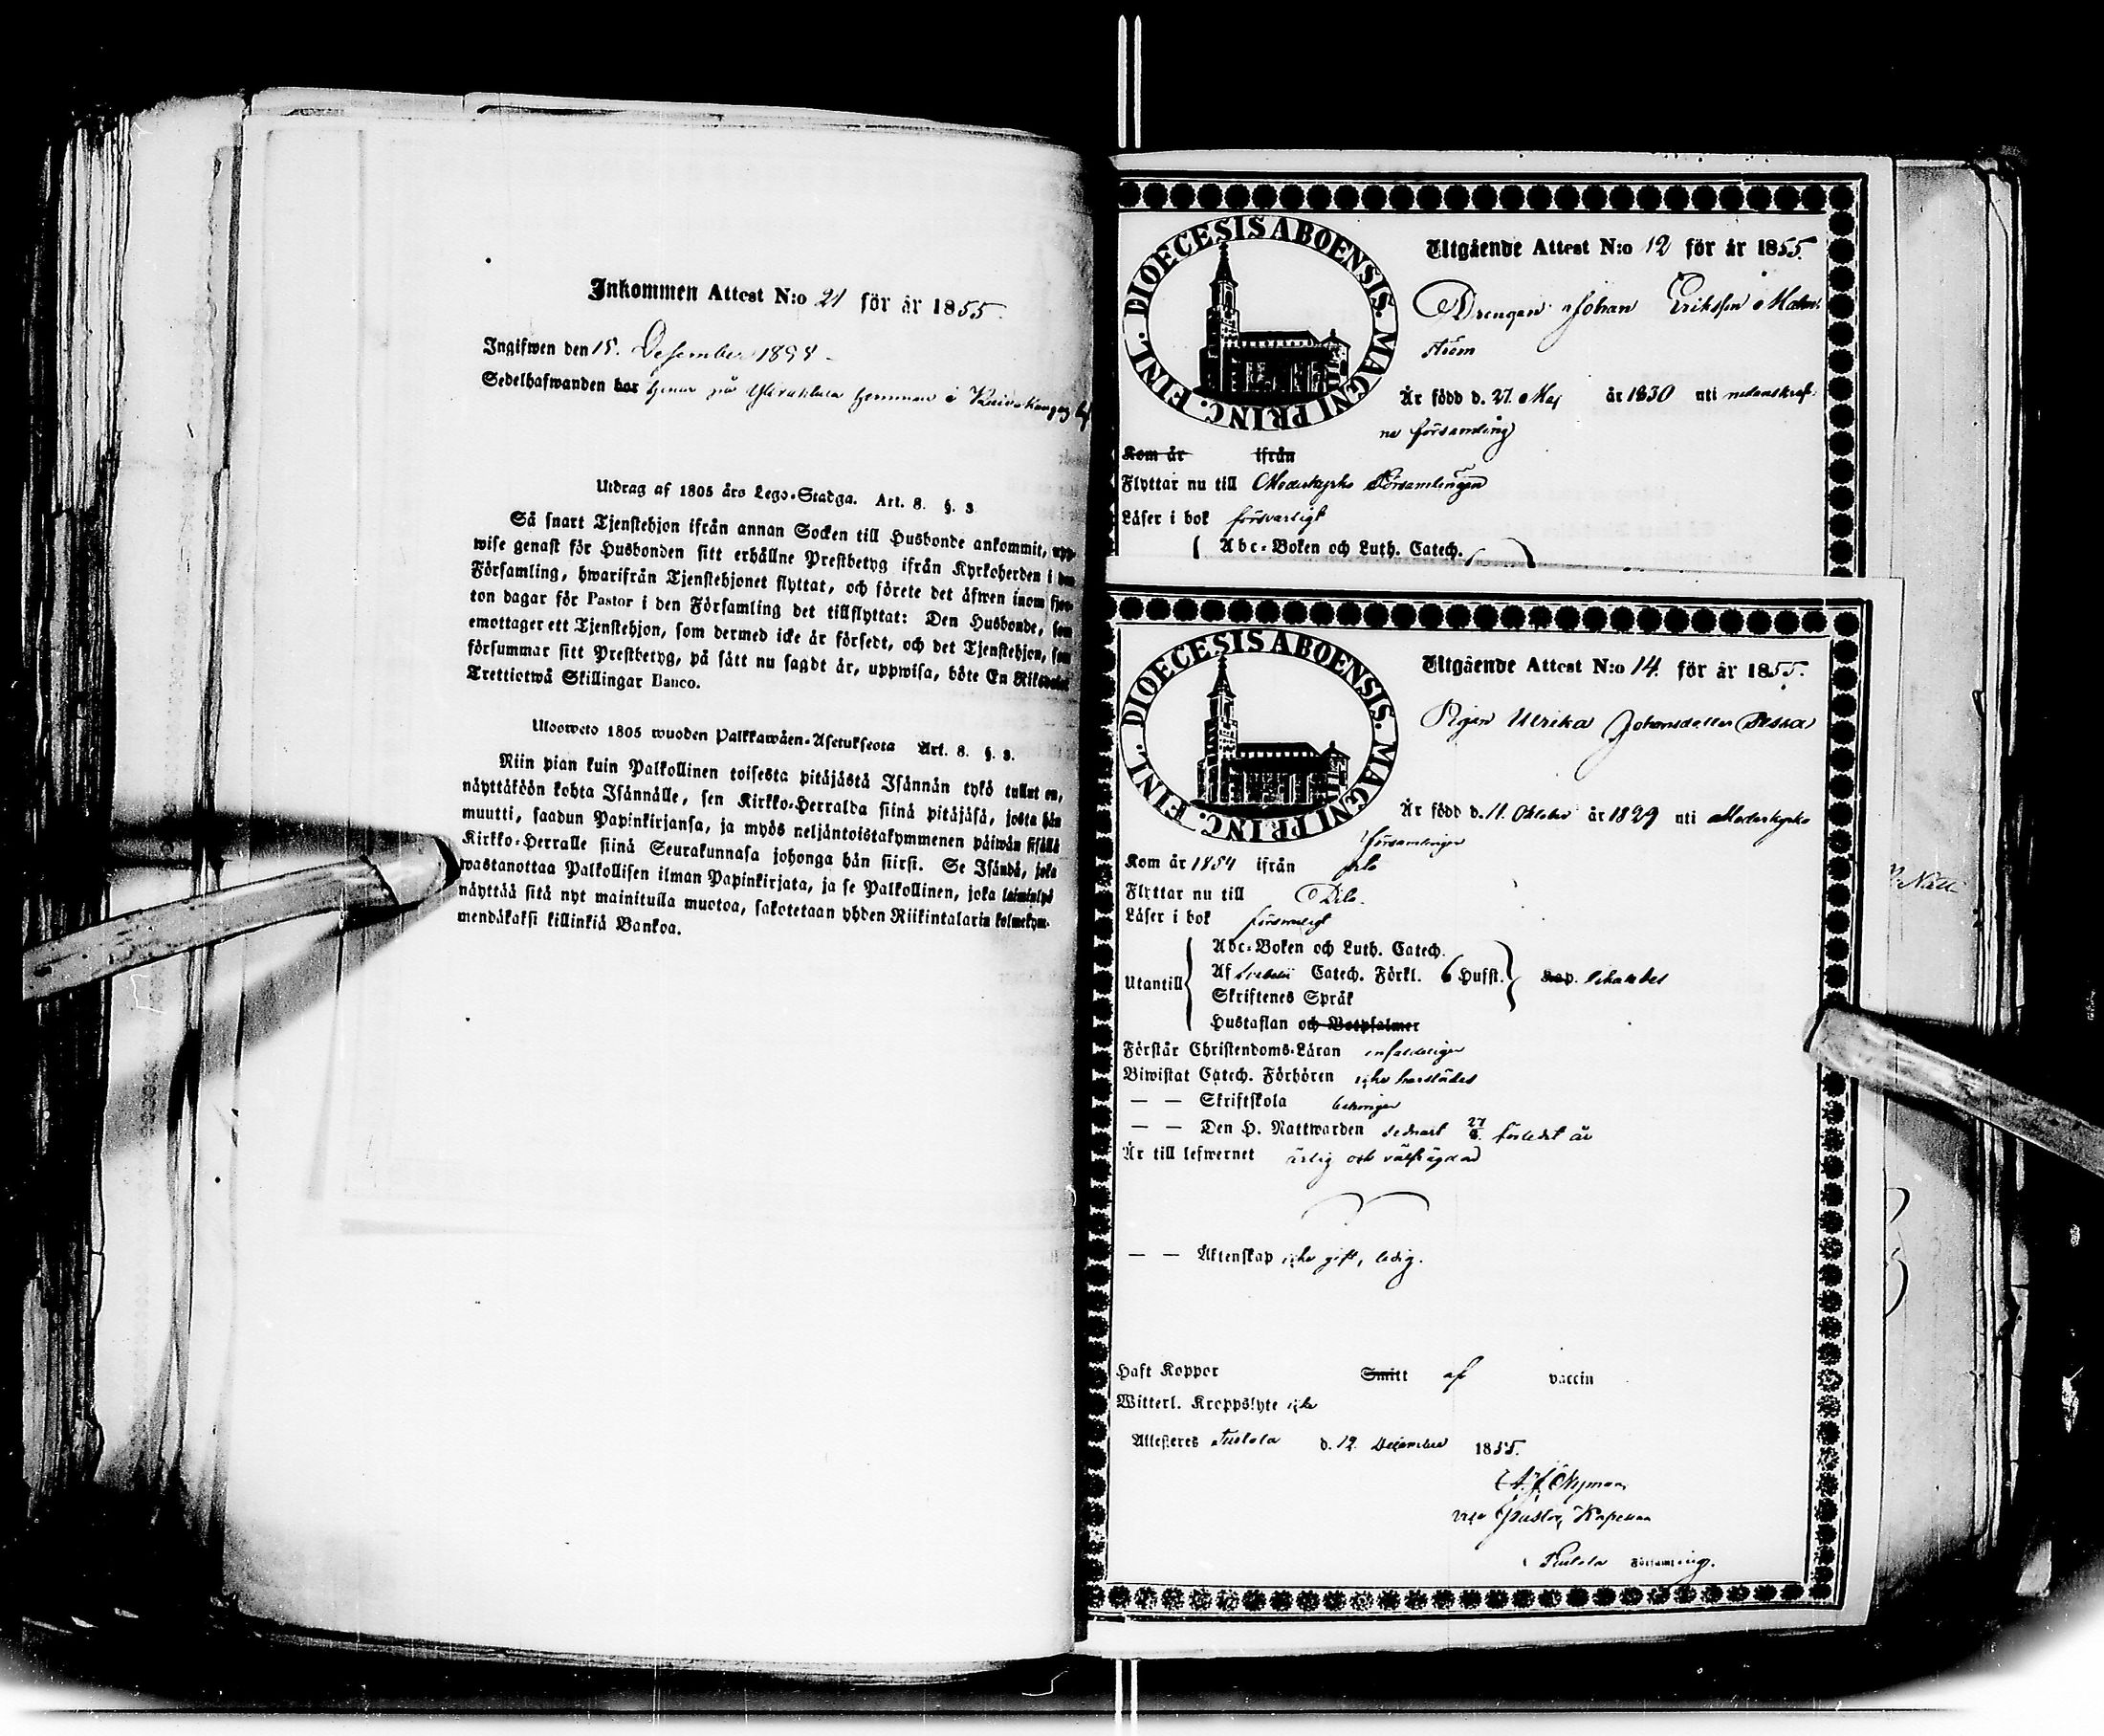 Inkommen Attest N:o 21 för år 1855
Ingifwen den 15. December 1898
Sedelhafwanden har
Utdrag af 1805 års Lego-Stadga. Art. 8. §. 3
Så snart Tjenstehjon ifrån annan Socken till Husbonde ankommit, upp-
wise genast för Husbonden sitt erhållne Prestbetyg ifrån Kyrkoherden i den
Församling, hwarifrån Tjenstehjonet flyttat, och förete det äfwen inom fjor-
ton dagar för Pastor i den Församling det tillflyttat: Den Husbonde, som
emottager ett Tjenstehjon, som dermed icke är försedt, och det Tjenstehjon, som
försummar sitt Prestbetyg, på sätt nu sagdt är, uppwisa, böte En Riksdaler
Trettiotwå Skillingar Banco.
Ulosweto 1805 wuoden Palkkawäen-Asetuksesta Art. 8. §. 3.
Niin pian kuin Palkollinen toisesta pitäjästä Isännän tykö tullut on,
näyttäköön kohta Isännälle, sen Kirkko-Herralda siinä pitäjäsä, josta hän
muutti, saadun Papinkirjansa, ja myös neljäntoistakymmenen päiwän sisällä
Kirkko-Herralle siinä Seurakunnasa johonga hän siirsi. Se Isändä, joka
wastanottaa Palkollisen ilman Papinkirjata, ja se Palkollinen, joka laiminlyö
näyttää sitä nyt mainitulla muotoa, sakotetaan yhden Riikintalarin kolmekym-
mendäkaksi killinkiä Bankoa.
DIOECESIS ABOENSIS. MAGNI PRINC. FINL.
Utgående Attest N:o 12 för år 1855.
Drengen Johan Eriksson Malm-
ström
Är född d. 27. Maj år 1830 uti nedanskref-
ne församling
Kom år ifrån
Flyttar nu till Moderkyrko Församlingen
Läser i bok försvarligt
Abc-Boken och Luth. Catech.
DIOECESIS ABOENSIS. MAGNI PRINC. FINL.
Utgående Attest N:o 14. för år 1855.
Pigan Ulrika Johansdotter
Är född d. 11. Oktober år 1829 uti Moderkyrko
församlingen
Kom år 1854 ifrån
Flyttar nu till Dito.
Läser i bok försvarligt
Utantill
Abc-Boken och Luth. Catech.
Af Svebelii Catech. Förkl. 6 Hufst.
Skriftenes Språk
Hustaflan och Botpsalmer
Förstår Christendoms-Läran enfaldeligen
Biwistat Catech. Förhören icke härstädes
— — Skriftskola behörigen
— — Den H. Nattwarden sednast 27/8. förledit år
Är till lefwernet ärlig och välfrägdad
— — Äktenskap icke gift, ledig.
Haft Koppor Smitt af vaccin
Witterl. Kroppslyte icke
Attesteres Tuulola d. 12. December 1855.
vice Pastor, Kapellan
i Församling.